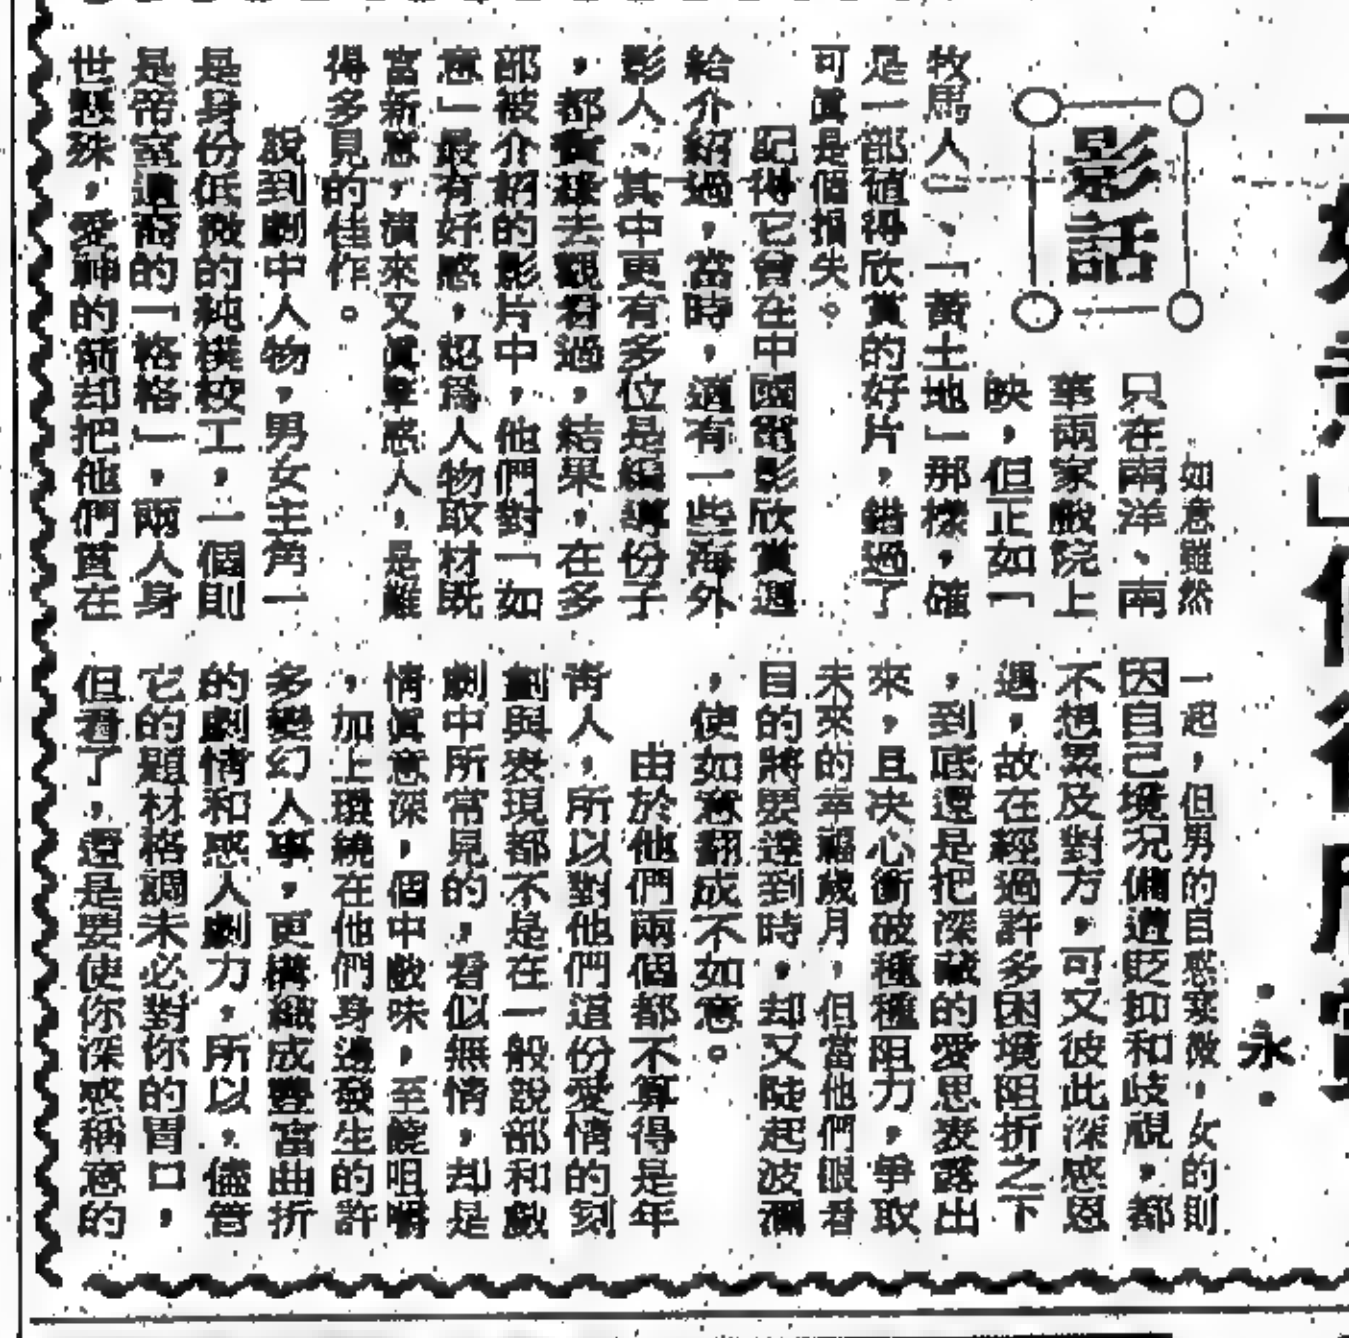 影話
·永·
如意雖然
只在南洋、南
華兩家戲院上
映，但正如「
牧馬人」、「黃土地」那樣，確
是一部值得欣賞的好片，錯過了
可眞是個損失。
記得它曾在中國電影欣賞週
給介紹過，當時，適有一些海外
影人，其中更有多位是編導份子
，都賣建去觀看過，結果，在多
部被介紹的影片中，他們對「如
意」最有好感，認爲人物取材既
富新意，演來又眞摯感人，是難
得多見的佳作。
說到劇中人物，男女主角一
是身份低微的純樸校工，一個則
是帝室遺裔的「格格」，兩人身
世懸殊，愛神的箭却把他們貫在
一起，但男的自感寒微，女的則
因自己境況備遭貶抑和歧視，都
不想累及對方，可又彼此深感恩
遇，故在經過許多困境阻折之下
，到底還是把深藏的愛思表露出
來，且决心衝破種種阻力，爭取
未來的幸福歲月，但當他們眼看
目的將要達到時，却又陡起波瀾
，使如意翻成不如意。
由於他們兩個都不算得是年
靑人，所以對他們這份愛情的刻
劃與表現都不是在一般說部和戲
劇中所常見的，看似無情，却是
情眞意深，個中戲味，至饒咀嚼
，加上環繞在他們身邊發生的許
多變幻人事，更構織成豐富曲折
的劇情和感人劇力，所以，儘管
它的題材格調未必對你的胃口，
但看了，還是要使你深感稱意的